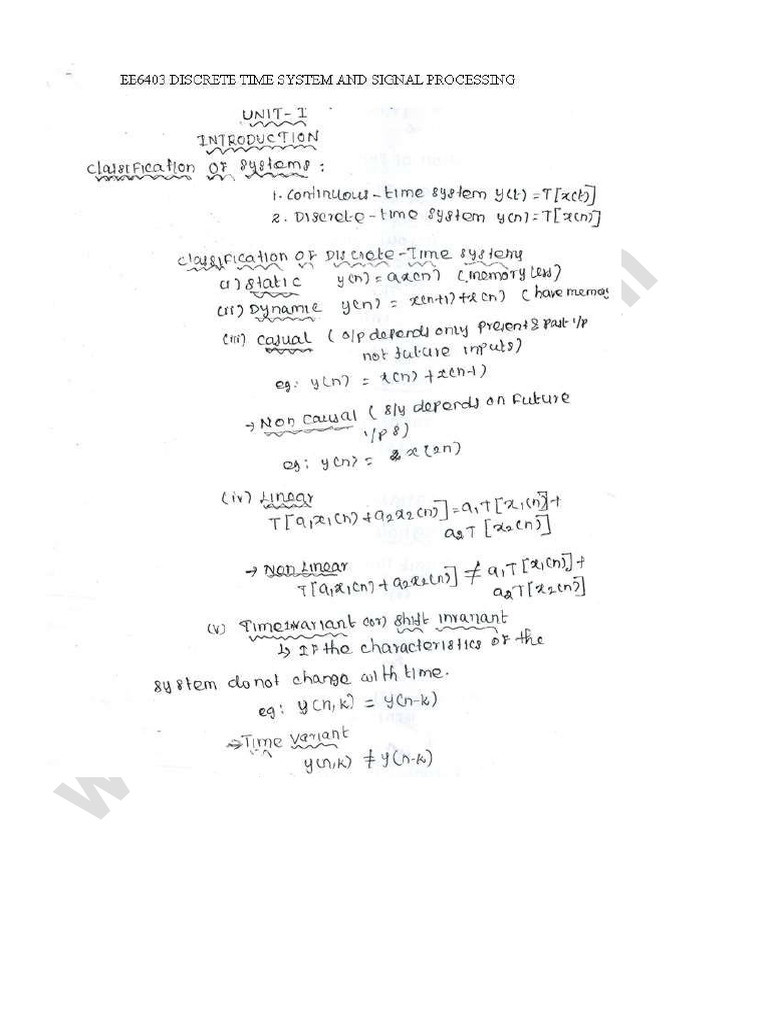 EE6403 DISCRETE TIME SYSTEM AND SIGNAL PROCESSING
UNIT-I
INTRODUCTION
Classification of Systems :
1. Continuous-time system y(t)=T[x(t)]
2. Discrete-time system y(n)=T[x(n)]
Classification of Discrete-Time Systems
(i) Static y(n)=ax(n) (memory less)
(ii) Dynamic y(n) = x(n+1)+x(n) (have memo
(iii) Casual (o/p depends only present & past i/p
not future inputs)
eg: y(n) = x(n)+x(n-1)
→ Non Causal (s/y depends on Future
i/p s)
eg: y(n) = x(2n)
(iv) Linear
T[a1x1(n)+a2x2(n)]=a1T[x1(n)]+
a2T[x2(n)]
→ Non Linear
T[a1x1(n)+a2x2(n)] ≠ a1T[x1(n)]+
a2T[x2(n)]
(v) Timeinvariant (or) Shift invariant
↳ If the characteristics of the
system do not change with time.
eg: y(n,k) = y(n-k)
→Time Variant
y(n,k) ≠ y(n-k)